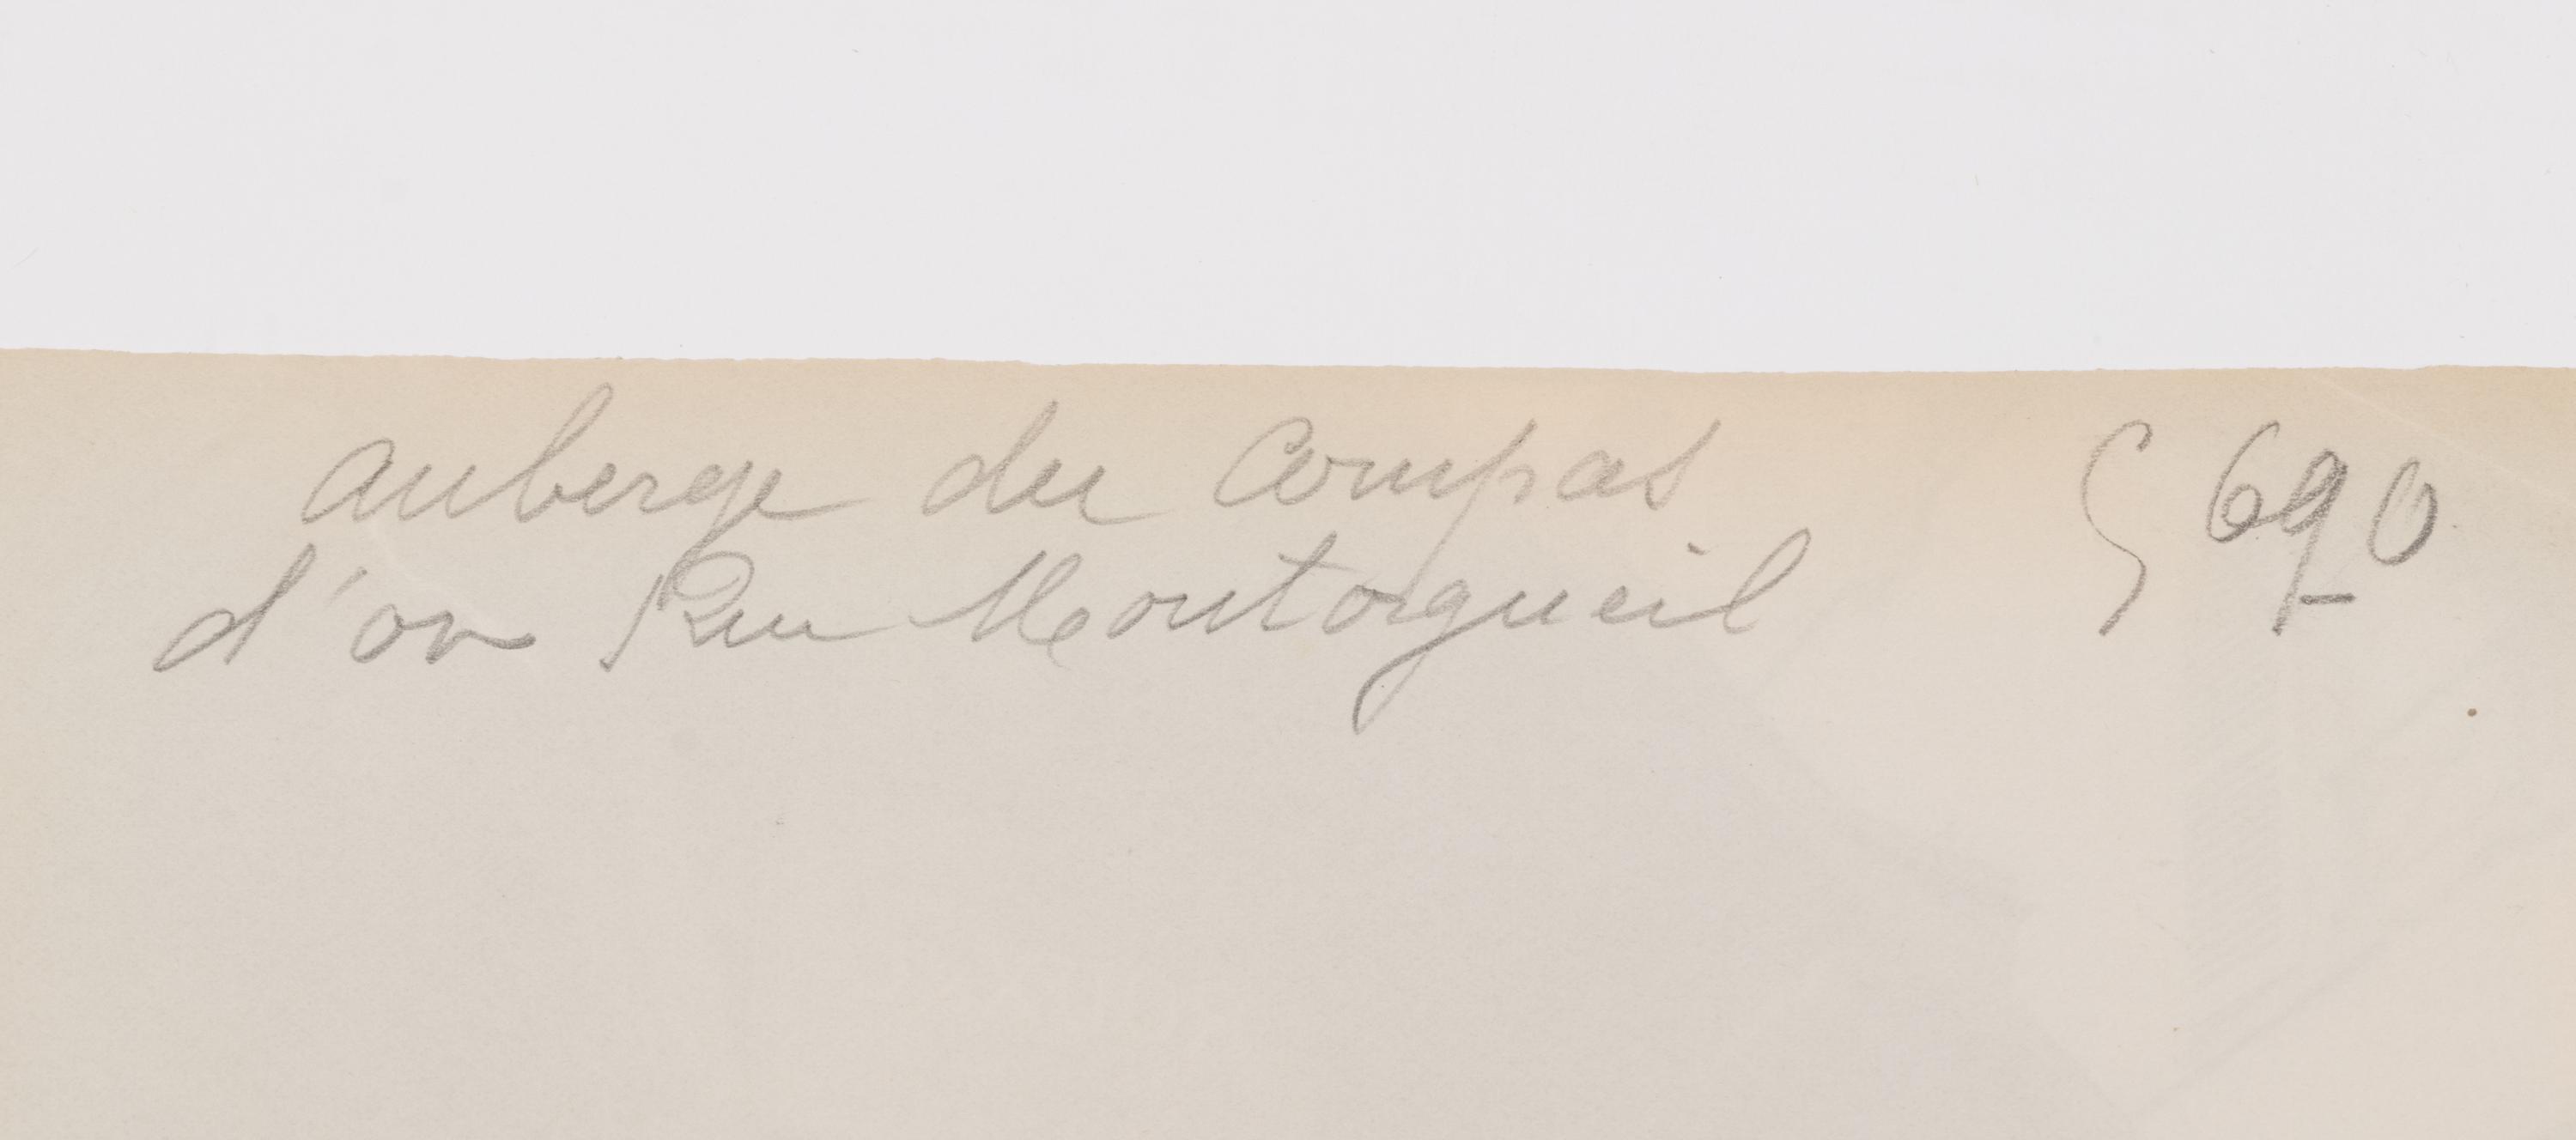 auberge du Compas 5690
d'or Rue Montorgueil